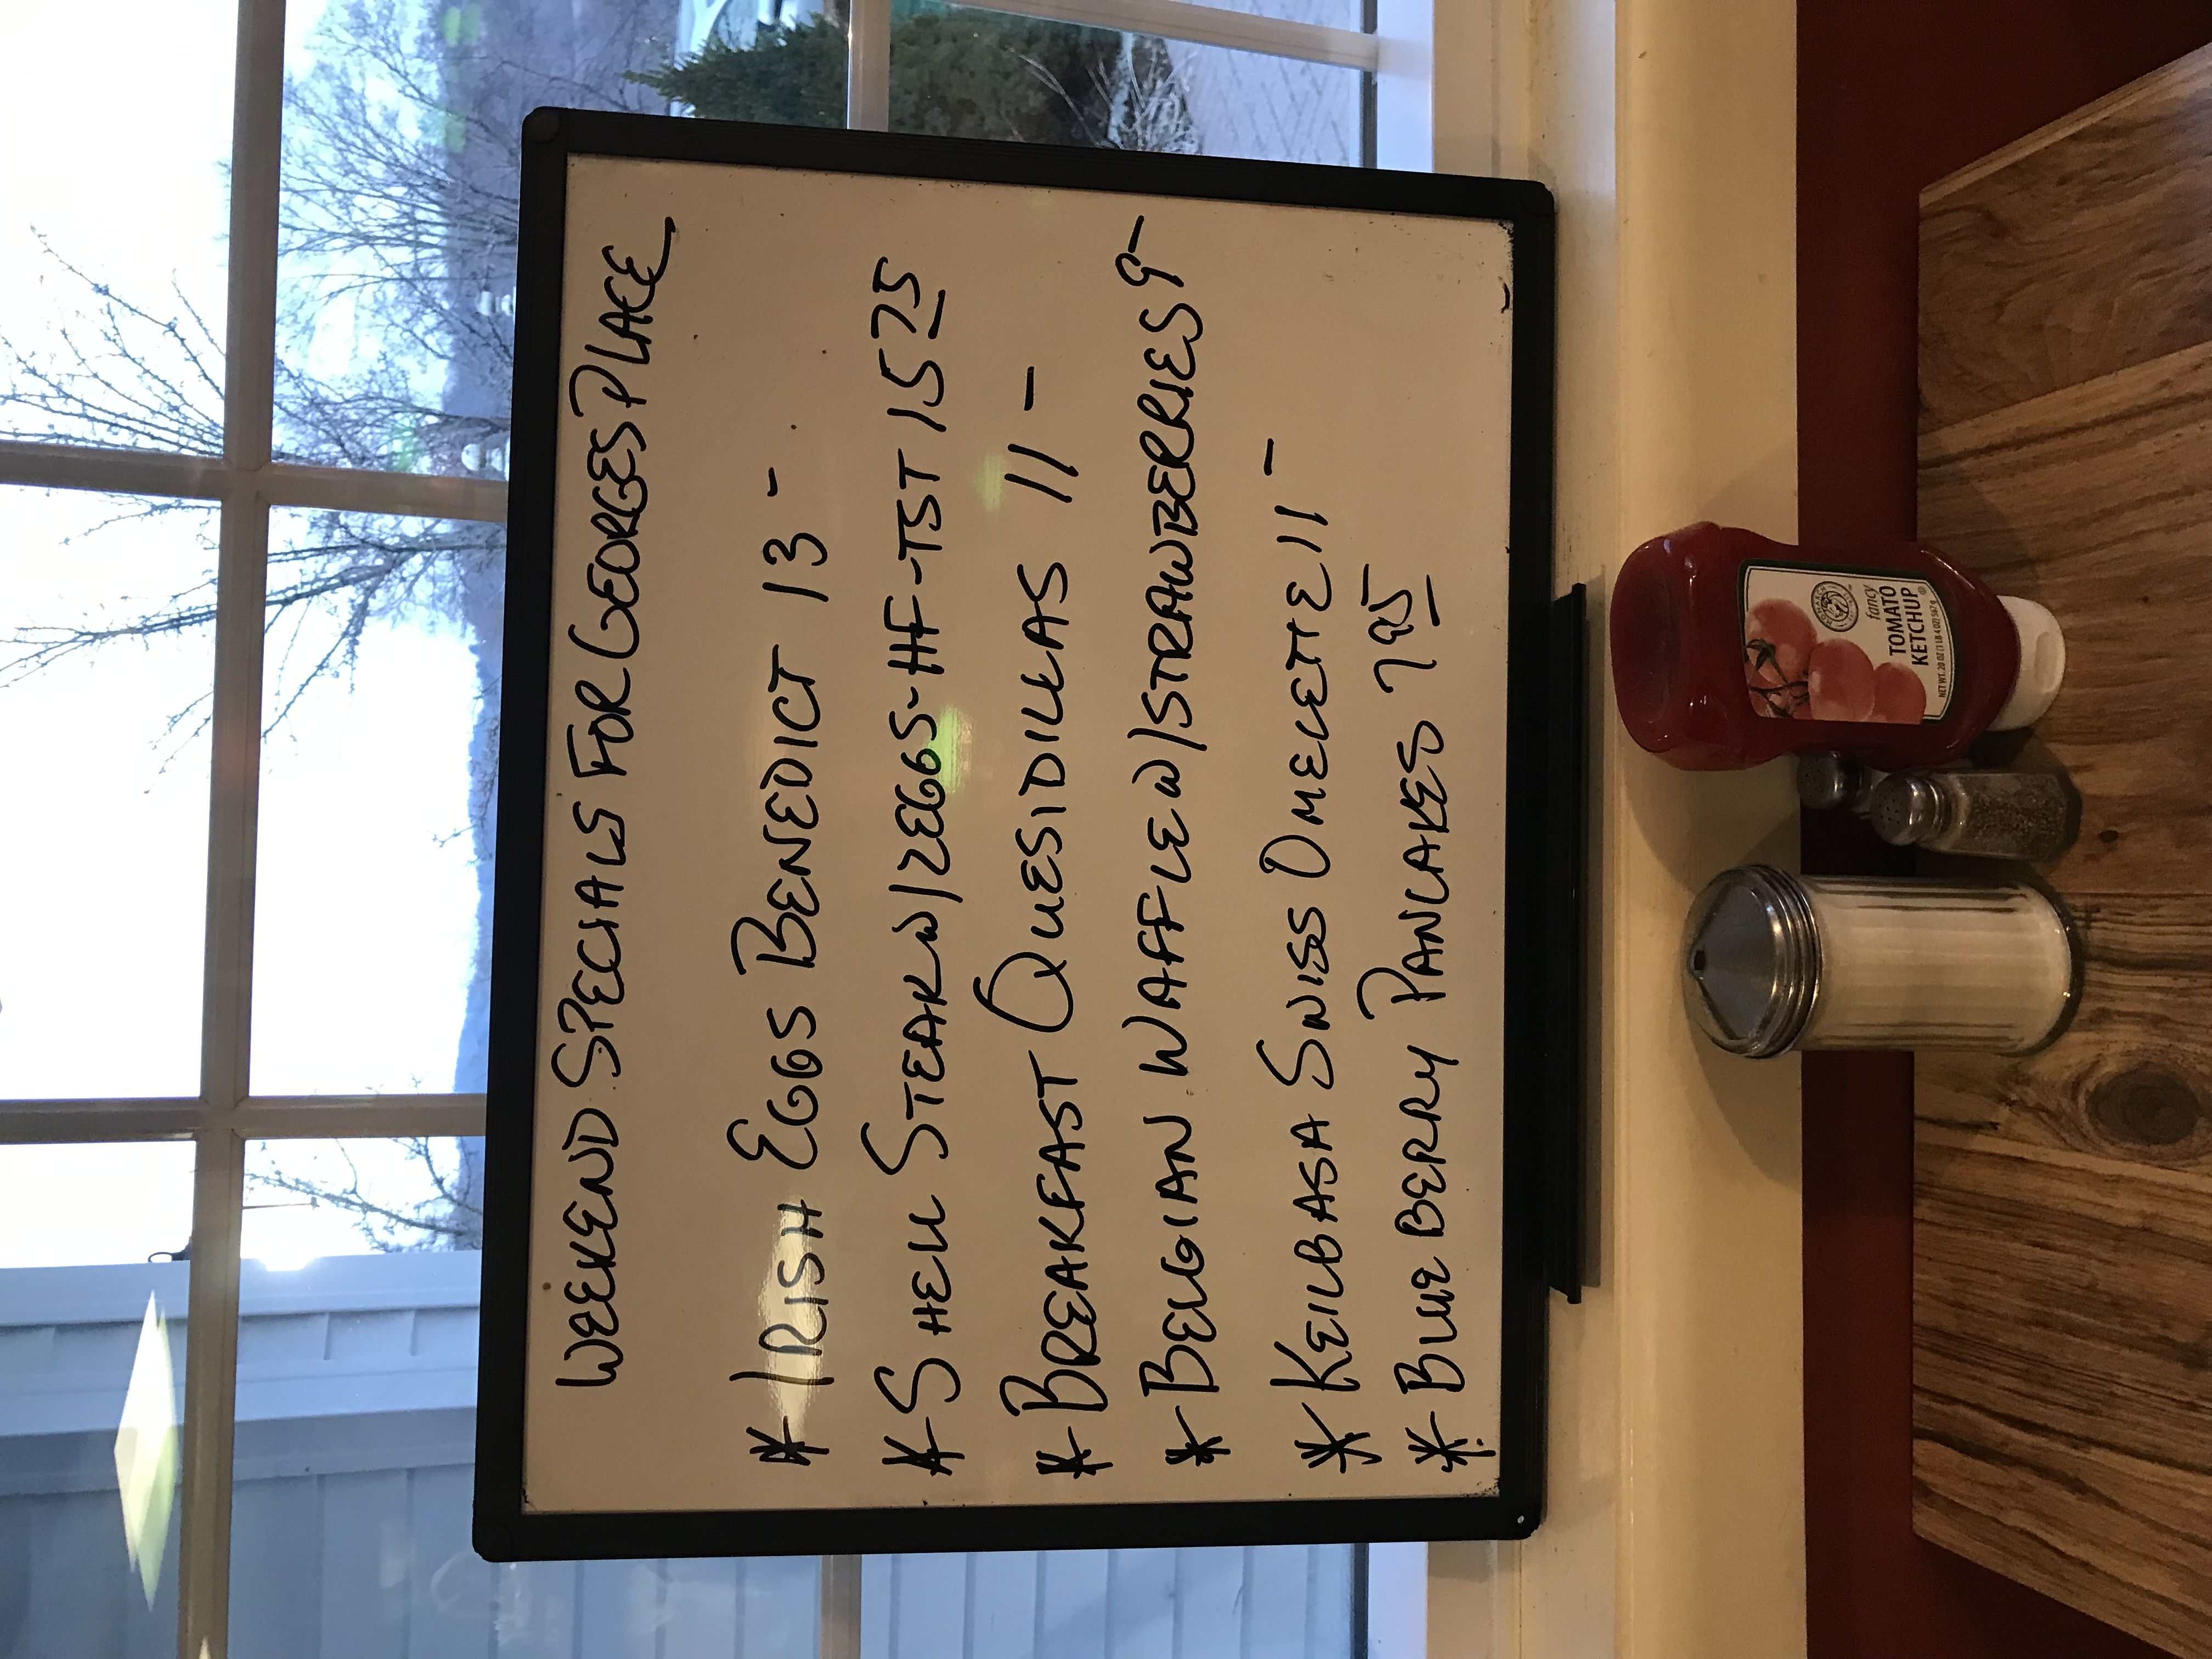 WEEKEND SPECIALS FOR GEORGES PLACE
* IRISH EGGS BENEDICT 13 -
* SHELL STEAK W/2EGGS-HF-TST 15 75
* BREAKFAST QUESIDILLAS 11 -
* BELGIAN WAFFLE W/STRAWBERRIES 9-
* KEILBASA SWISS OMELETTE 11 -
* BLUEBERRY PANCAKES 7 95
fancy
TOMATO
KETCHUP
NET WT. 20 OZ (1 LB 4 OZ) 567g